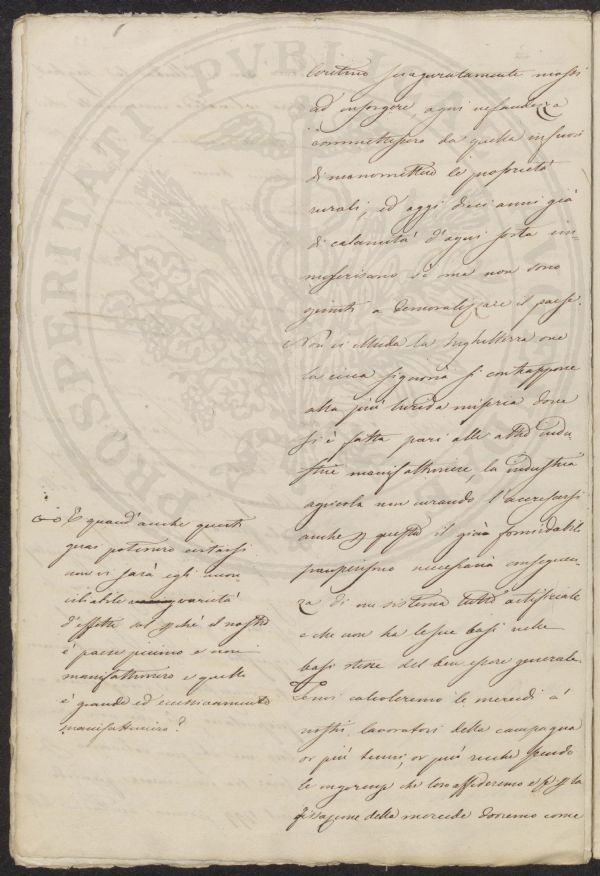 PROSPERITATI PUBLICAE AUG
sciaguratamente mossi
ad insorgere ogni nefandezza
commettessero da quella infuori
di manomettere le proprietà
rurali, ed oggi dieci anni già
di calamità d'ogni sorta im=
miserisano, sì ma non sono
giunti a demoralizzare il paese.
Non vi illuda la Inghilterra ove
la ricca signoria si contrappone
alla più lurida miseria dove
si è fatta pari alle altre indu
strie manifatturiere, la industria
agricola non curando l'accrescersi
anche per questo il già formidabile
pauperismo necessaria conseguen-
za di un sistema tutto artificiale
e che non ha le sue basi nelle
basi stesse del ben essere generale.
noi calcoleremo le mercedi a'
nostri lavoratori della campagna
or più tenui, or più ricche secondo
le ingerenze che loro affideremo e se per la
fissazione della mercede dovremo come
E quand'anche questi
potessero evitarsi
non vi sarà egli
varietà
d'effetto sol perchè il nostro
è paese piccino e non
manifatturiero e quello
è grande ed eccessivamente
manifatturiero?